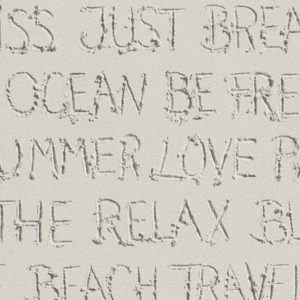 ISS JUST BREA
OCEAN BE FRE
UMMER LOVE
THE RELAX BL
BEACH TRAVEL